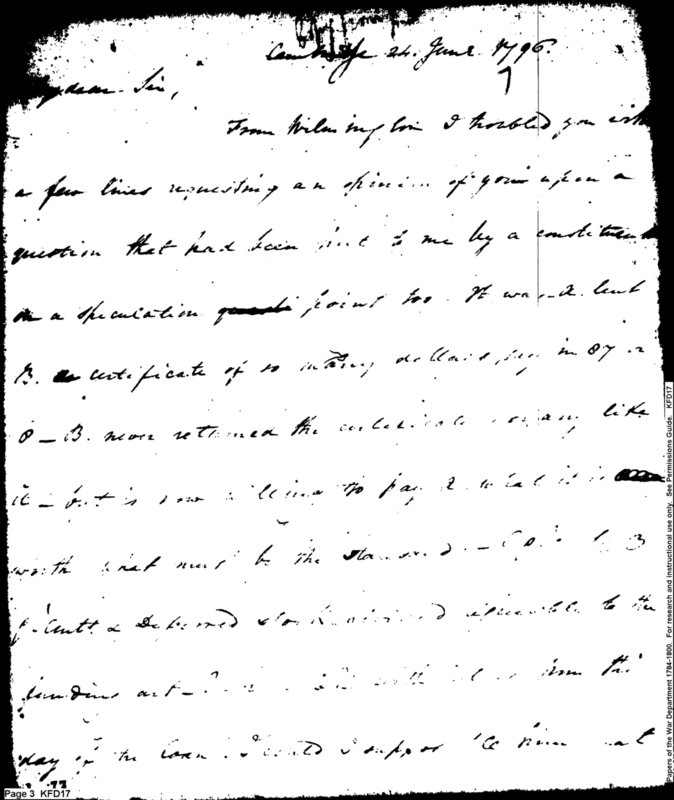 Cambridge 24. June 1796.
dear Sir,
From Wilmington I troubled you with
a few lines requesting an opinion of your upon a
question that had been put to me by a constituent
on a speculation point too. It was A. lent
B. a certificate of so many dollars, say in 87 or
8 – B. never returned the certificate or any like
it – but is now willing to pay A what it is
worth what must be the standard. – 3
p. Cents & Deferred stock to the
funding act – from the
day of the Loan. I could I suppose
Page 3 KFD17
Papers of the War Department 1784-1800. For research and instructional use only. See Permissions Guide. KFD17